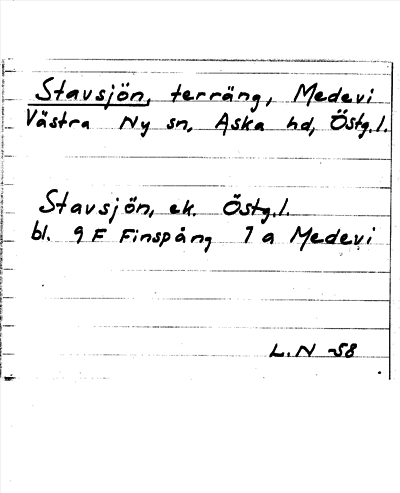 Stavsjön, terräng, Medevi
Västra Ny sn, Aska hd, Östg.l.
Stavsjön, ek. Östg.l.
bl. 9 F Finspång 7 a Medevi
L.N -58